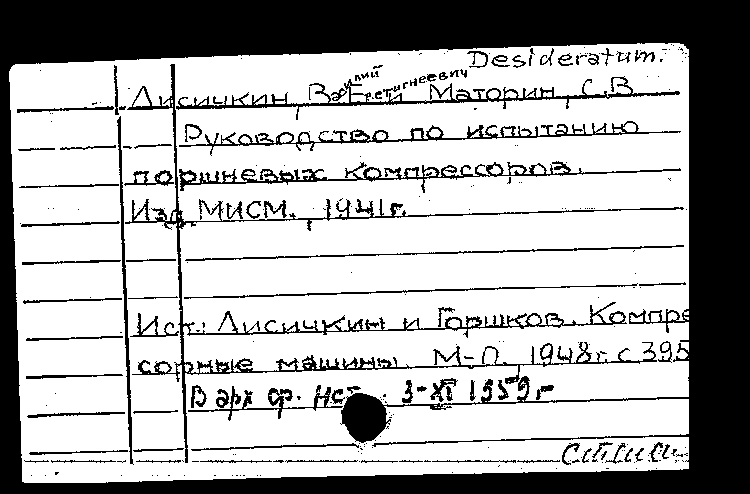 Desideratum.
Лисичкин, Василий Еретигнеевич Маторин, С.В
Руководство по испытанию
поршневых компрессоров.
Изд. МИСМ., 1941г.
Ист.: Лисичкин и Горшков. Компре
сорные машины. М-Л. 1948г. с 395
В арх ф. нет. 3-XI 1959г